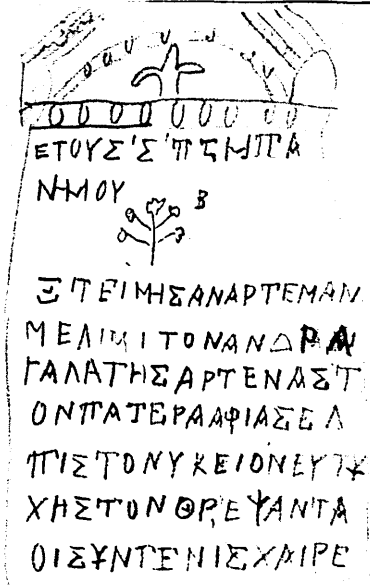 ΕΤΟΥΣ'Σ'ΠΖΜΠΑ
ΝΗΜΟΥ
Β
ΞΤΕΙΜΗΣΑΝΑΡΤΕΜΑΝ
ΜΕΛΙΜΙΤΟΝΑΝΔΡΑ
ΓΑΛΑΤΗΣΑΡΤΕΝΑΣΤ
ΟΝΠΑΤΕΡΑΑΦΙΑΣΕΛ
ΠΙΣΤΟΝΥΚΕΙΟΝΕΥΤΥ
ΧΗΣΤΟΝΘΡΕΨΑΝΤΑ
ΟΙΣΥΝΓΕΝΙΣΧΑΙΡΕ